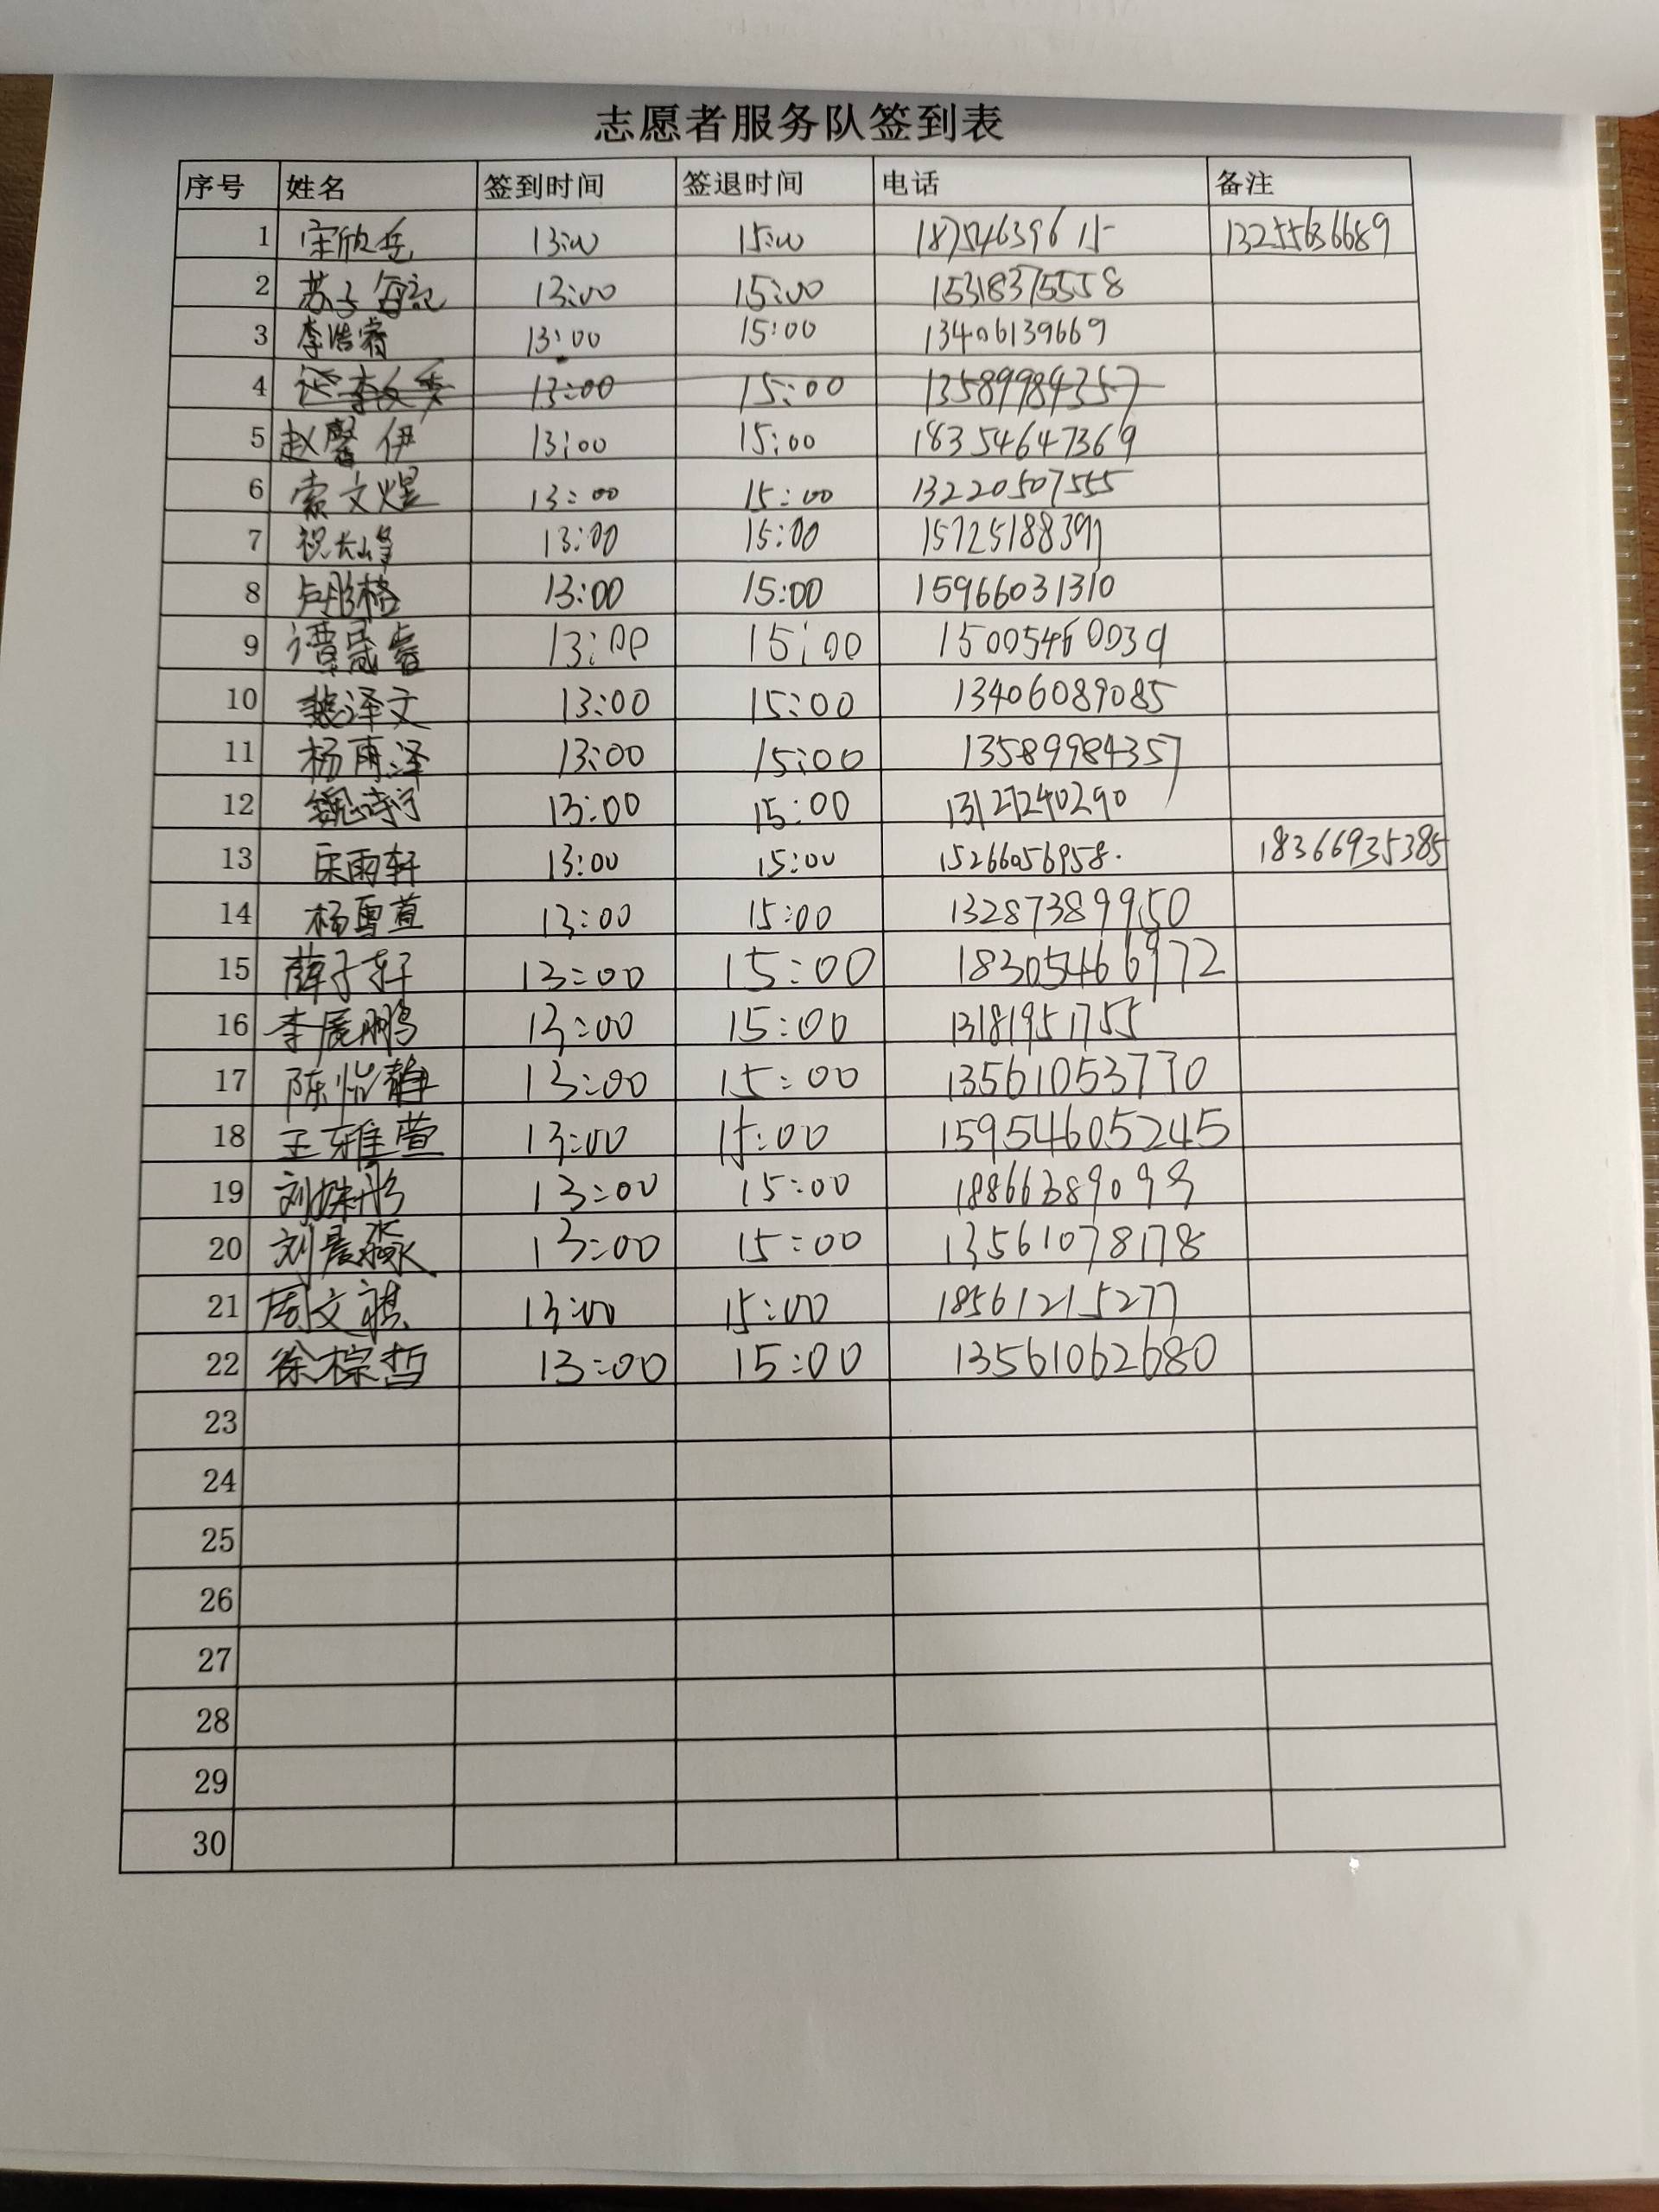 志愿者服务队签到表
序号 姓名 签到时间 签退时间 电话 备注
1 宋欣岳 13:00 15:00 18754639615 13255636689
2 苏子 13:00 15:00 15318375558
3 李浩睿 13:00 15:00 13406139669
4 13:00 15:00 13589984357
5 赵馨伊 13:00 15:00 18354647369
6 索文煜 13:00 15:00 13220507555
7 祝大峰 13:00 15:00 15725188391
8 卢彤格 13:00 15:00 15966031310
9 谭晟睿 13:00 15:00 15005460039
10 裴泽文 13:00 15:00 13406089085
11 杨雨泽 13:00 15:00 13589984357
12 魏诗宁 13:00 15:00 13127240290
13 宋雨轩 13:00 15:00 15266056958. 18366935385
14 杨雪萱 13:00 15:00 13287389950
15 薛子轩 13:00 15:00 18305466972
16 李展鹏 13:00 15:00 13181951755
17 陈怡静 13:00 15:00 13561053770
18 王雅萱 13:00 15:00 15954605245
19 刘姝彤 13:00 15:00
20 刘晨淼 13:00 15:00 13561078178
21 周文祺 13:00 15:00 18561215277
22 徐棕哲 13:00 15:00 13561062680
23
24
25
26
27
28
29
30